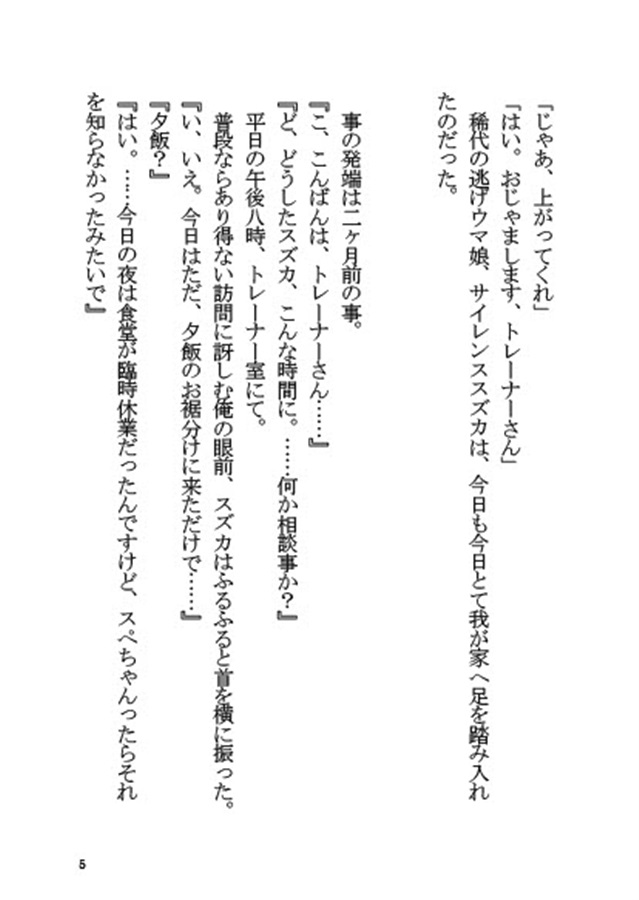 「じゃあ、上がってくれ」
「はい。おじゃまします、トレーナーさん」
稀代の逃げウマ娘、サイレンススズカは、今日も今日とて我が家へ足を踏み入れ
たのだった。
事の発端は二ヶ月前の事。
『こ、こんばんは、トレーナーさん……』
『ど、どうしたスズカ、こんな時間に。……何か相談事か？』
平日の午後八時、トレーナー室にて。
普段ならあり得ない訪問に訝しむ俺の眼前、スズカはふるふると首を横に振った。
『い、いえ。今日はただ、夕飯のお裾分けに来ただけで……』
『夕飯？』
『はい。……今日の夜は食堂が臨時休業だったんですけど、スペちゃんったらそれ
を知らなかったみたいで』
5